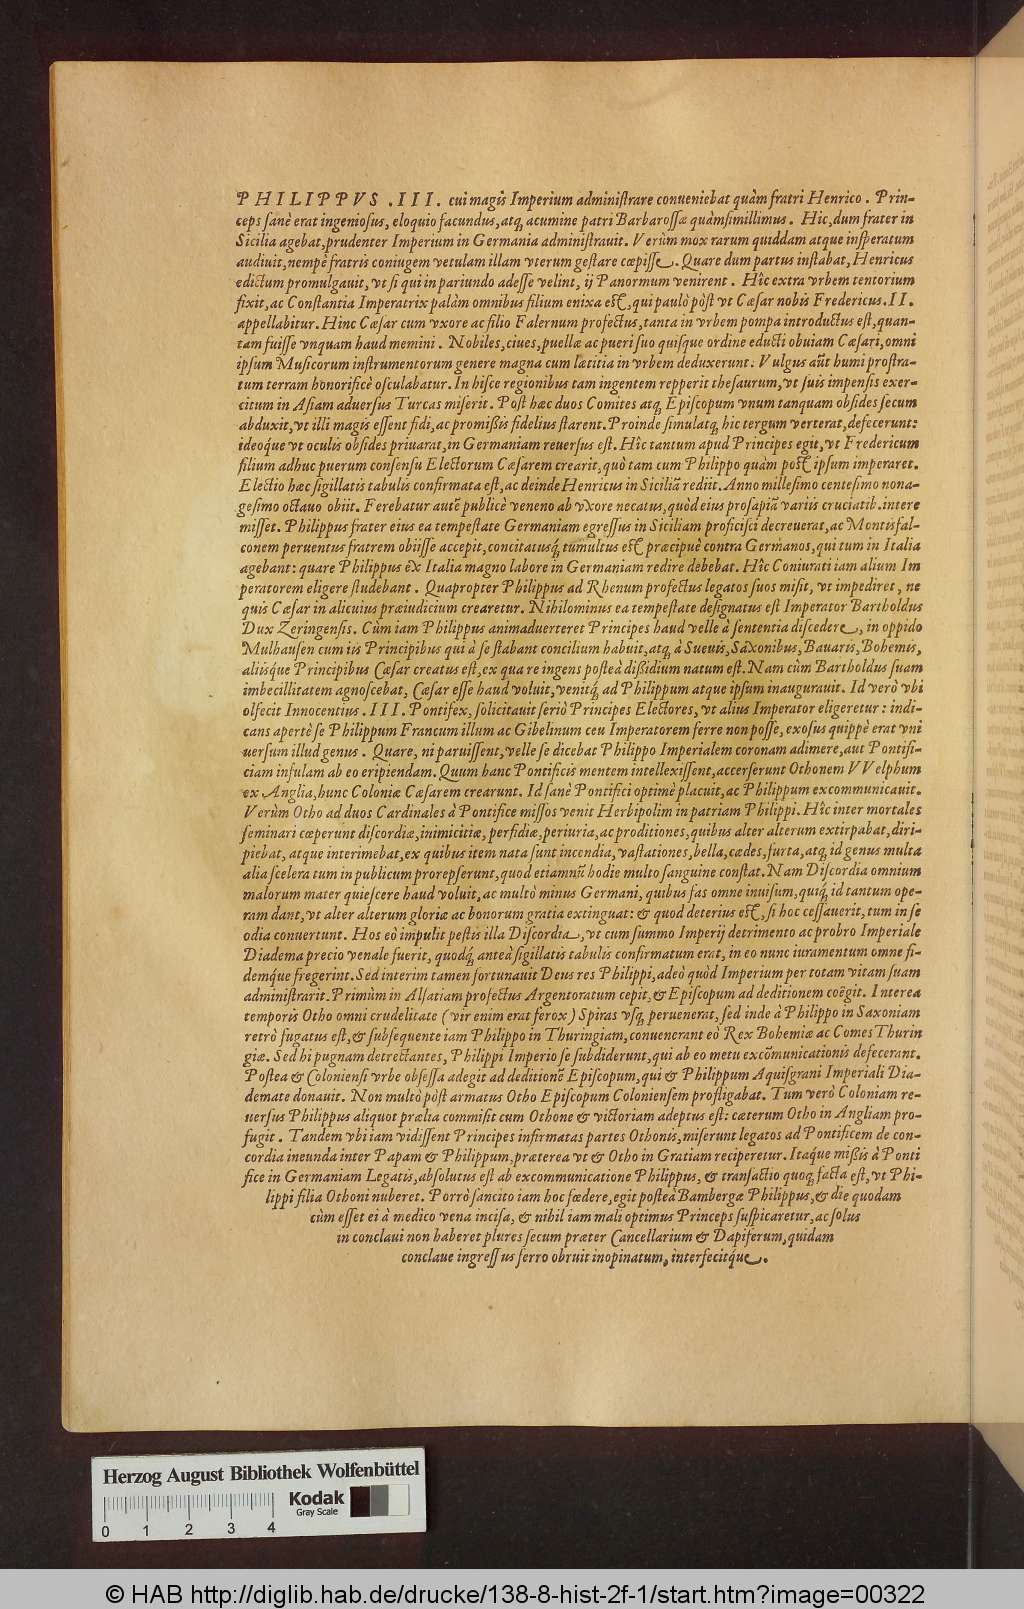 PHILIPPVS .III. cui magis Imperium adminiſtrare conueniebat quàm fratri Henrico. Prin-
ceps ſanè erat ingenioſus, eloquio facundus, atq; acumine patri Barbaroſſæ quàmſimillimus. Hic, dum frater in
Sicilia agebat, prudenter Imperium in Germania adminiſtrauit. Verùm mox rarum quiddam atque inſperatum
audiuit, nempè fratris coniugem vetulam illam vterum geſtare cœpiſſe. Quare dum partus inſtabat, Henricus
edictum promulgauit, vt ſi qui in pariundo adeſſe velint, ij Panormum venirent. Hîc extra vrbem tentorium
fixit, ac Conſtantia Imperatrix palàm omnibus filium enixa eſt, qui paulò pòſt vt Cæſar nobis Fredericus .II.
appellabitur. Hinc Cæſar cum vxore ac filio Falernum profectus, tanta in vrbem pompa introductus eſt, quan-
tam fuiſſe vnquam haud memini. Nobiles, ciues, puellæ ac pueri ſuo quiſque ordine educti obuiam Cæſari, omni
ipſum Muſicorum inſtrumentorum genere magna cum lætitia in vrbem deduxerunt. Vulgus aūt humi proſtra-
tum terram honorificè oſculabatur. In hiſce regionibus tam ingentem repperit theſaurum, vt ſuis impenſis exer-
citum in Aſiam aduerſus Turcas miſerit. Poſt hæc duos Comites atq; Epiſcopum vnum tanquam obſides ſecum
abduxit, vt illi magis eſſent fidi, ac promißis fidelius ſtarent. Proinde ſimulatq; hic tergum verterat, defecerunt:
ideóque vt oculis obſides priuarat, in Germaniam reuerſus eſt. Hîc tantum apud Principes egit, vt Fredericum
filium adhuc puerum conſenſu Electorum Cæſarem crearit, quò tam cum Philippo quàm poſt ipſum imperaret.
Electio hæc ſigillatis tabulis confirmata eſt, ac deinde Henricus in Siciliā rediit. Anno milleſimo centeſimo nona-
geſimo octauo obiit. Ferebatur autē publicè veneno ab vxore necatus, quòd eius proſapiā variis cruciatib. intere
miſſet. Philippus frater eius ea tempeſtate Germaniam egreſſus in Siciliam proficiſci decreuerat, ac Montisfal-
conem peruentus fratrem obiiſſe accepit, concitatusq́; tumultus eſt præcipuè contra Germanos, qui tum in Italia
agebant: quare Philippus ex Italia magno labore in Germaniam redire debebat. Hîc Coniurati iam alium Im
peratorem eligere ſtudebant. Quapropter Philippus ad Rhenum profectus legatos ſuos miſit, vt impediret, ne
quis Cæſar in alicuius præiudicium crearetur. Nihilominus ea tempeſtate deſignatus eſt Imperator Bartholdus
Dux Zeringenſis. Cùm iam Philippus animaduerteret Principes haud velle à ſententia diſcedere, in oppido
Mulhauſen cum iis Principibus qui à ſe ſtabant concilium habuit, atq; à Sueuis, Saxonibus, Bauaris, Bohemis,
aliisque Principibus Cæſar creatus eſt, ex qua re ingens poſteà dißidium natum eſt. Nam cùm Bartholdus ſuam
imbecillitatem agnoſcebat, Cæſar eſſe haud voluit, venitq́; ad Philippum atque ipſum inaugurauit. Id verò vbi
olfecit Innocentius .III. Pontifex, ſolicitauit ſeriò Principes Electores, vt alius Imperator eligeretur: indi-
cans apertè ſe Philippum Francum illum ac Gibelinum ceu Imperatorem ferre non poſſe, exoſus quippè erat vni
uerſum illud genus. Quare, ni paruiſſent, velle ſe dicebat Philippo Imperialem coronam adimere, aut Pontifi-
ciam infulam ab eo eripiendam. Quum hanc Pontificis mentem intellexiſſent, accerſerunt Othonem VVelphum
ex Anglia, hunc Coloniæ Cæſarem crearunt. Id ſanè Pontifici optimè placuit, ac Philippum excommunicauit.
Verùm Otho ad duos Cardinales à Pontifice miſſos venit Herbipolim in patriam Philippi. Hîc inter mortales
ſeminari cœperunt diſcordiæ, inimicitiæ, perfidiæ, periuria, ac proditiones, quibus alter alterum extirpabat, diri-
piebat, atque interimebat, ex quibus item nata ſunt incendia, vaſtationes, bella, cædes, furta, atq; id genus multa
alia ſcelera tum in publicum prorepſerunt, quod etiamnū hodie multo ſanguine conſtat. Nam Diſcordia omnium
malorum mater quieſcere haud voluit, ac multò minus Germani, quibus fas omne inuiſum, quiq; id tantum ope-
ram dant, vt alter alterum gloriæ ac bonorum gratia extinguat: & quod deterius eſt, ſi hoc ceſſauerit, tum in ſe
odia conuertunt. Hos eò impulit peſtis illa Diſcordia, vt cum ſummo Imperij detrimento ac probro Imperiale
Diadema precio venale fuerit, quodq́; anteà ſigillatis tabulis confirmatum erat, in eo nunc iuramentum omne fi-
demq́ue fregerint. Sed interim tamen fortunauit Deus res Philippi, adeò quòd Imperium per totam vitam ſuam
adminiſtrarit. Primùm in Alſatiam profectus Argentoratum cepit, & Epiſcopum ad deditionem coëgit. Interea
temporis Otho omni crudelitate (vir enim erat ferox) Spiras vſq; peruenerat, ſed inde à Philippo in Saxoniam
retrò fugatus eſt, & ſubſequente iam Philippo in Thuringiam, conuenerant eò Rex Bohemiæ ac Comes Thurin
giæ. Sed hi pugnam detrectantes, Philippi Imperio ſe ſubdiderunt, qui ab eo metu excōmunicationis defecerant.
Poſtea & Colonienſi vrbe obſeſſa adegit ad deditionē Epiſcopum, qui & Philippum Aquiſgrani Imperiali Dia-
demate donauit. Non multò pòſt armatus Otho Epiſcopum Colonienſem profligabat. Tum verò Coloniam re-
uerſus Philippus aliquot prælia commiſit cum Othone & victoriam adeptus eſt: cæterum Otho in Angliam pro-
fugit. Tandem vbi iam vidiſſent Principes infirmatas partes Othonis, miſerunt legatos ad Pontificem de con-
cordia ineunda inter Papam & Philippum, præterea vt & Otho in Gratiam reciperetur. Itaq́ue mißis à Ponti
fice in Germaniam Legatis, abſolutus eſt ab excommunicatione Philippus, & tranſactio quoq; facta eſt, vt Phi-
lippi filia Othoni nuberet. Porrò ſancito iam hoc fœdere, egit poſteà Bambergæ Philippus, & die quodam
cùm eſſet ei à medico vena inciſa, & nihil iam mali optimus Princeps ſuſpicaretur, ac ſolus
in conclaui non haberet plures ſecum præter Cancellarium & Dapiferum, quidam
conclaue ingreſſus ferro obruit inopinatum, interfecitq́ue.
Herzog August Bibliothek Wolfenbüttel
Kodak
Gray Scale
0 1 2 3 4
© HAB http://diglib.hab.de/drucke/138-8-hist-2f-1/start.htm?image=00322